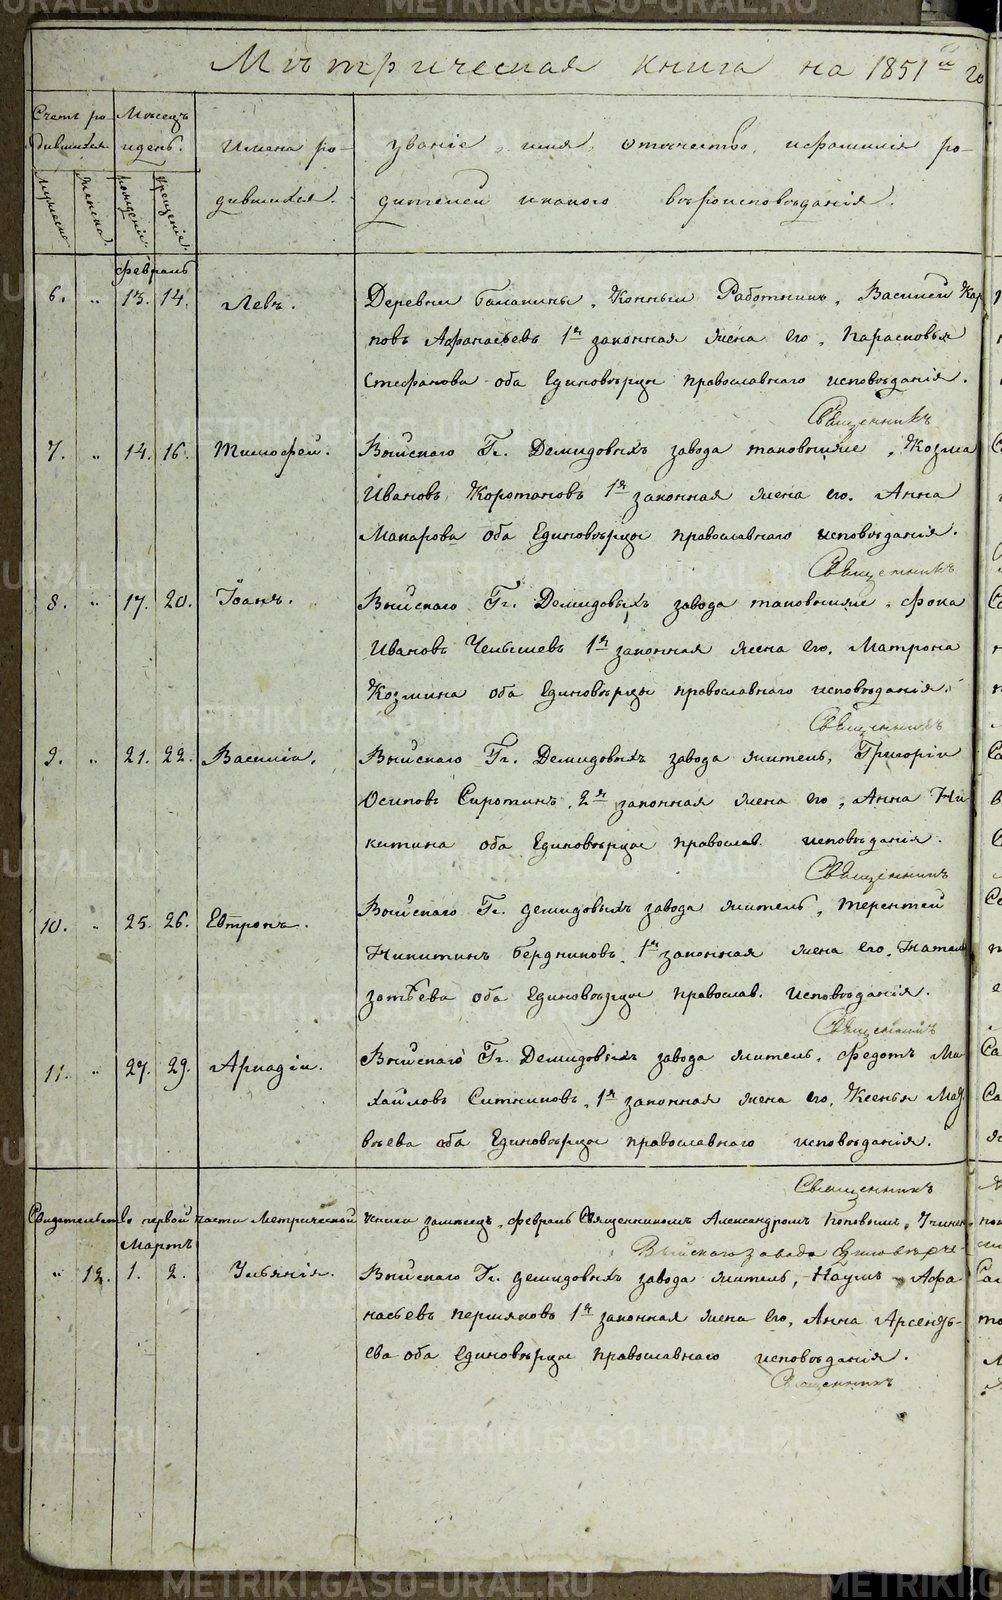 Метрическая книга на 1851й го
Счетъ ро-
дившихся
Месецъ
и день.
Имена ро-
дившихся.
Званіе, имя, отчество, и фамилія ро-
дителей и какого вѣроисповѣданія.
мужеска
женска.
рожденія.
крещенія.
Февраль
6. „ 13. 14. Левъ. Деревни Балакины, Конный Работникъ, Василей Кар
повъ Афанасьевъ 1я законная жена его, Парасковья
Стефанова оба Единовѣрцы православнаго исповѣданія.
Священникъ
7. „ 14. 16. Тимофей. Выйскаго Гг. Демидовыхъ завода таковыиже, Козма
Ивановъ Коротановъ 1я законная жена его. Анна
Макарова оба Единовѣрцы православнаго исповѣданія.
Священникъ
8. „ 17. 20. Іоанъ. Выйскаго Гг. Демидовыхъ завода таковыиже, Фока
Ивановъ Челышевъ 1я законная жена его, Матрона
Козмина оба Единовѣрцы православнаго исповѣданія.
Священникъ
9. „ 21. 22. Василій. Выйскаго Гг. Демидовыхъ завода житель, Григорій
Осиповъ Сиротинъ, 2я законная жена его, Анна Ни
китина оба Единовѣрцы православ. исповѣданія.
Священникъ
10. „ 25. 26. Евтропъ. Выйскаго Гг. Демидовыхъ завода житель, Терентей
Никитинъ Бердниковъ. 1я законная жена его,
оба Единовѣрцы православ. исповѣданія.
Священникъ
11. „ 27. 29. Аркадій. Выйскаго Гг. Демидовыхъ завода житель, Федотъ Ми
хайловъ Ситниковъ, 1я законная жена его, Ксенья Мат
вѣева оба Единовѣрцы православнаго исповѣданія.
Священникъ
первой части Метрической книги за месецъ, февраль Священникомъ Александромъ Поповымъ,
Выйскаго завода Единовѣрче-
Мартъ
„ 12. 1. 2. Ульянія. Выйскаго Гг. Демидовыхъ завода житель, Наумъ Афа
насьевъ Першяковъ 1я законная жена его, Анна Арсенть-
ева оба Единовѣрцы православнаго исповѣданія.
Священникъ
METRIKI.GASO-URAL.RU